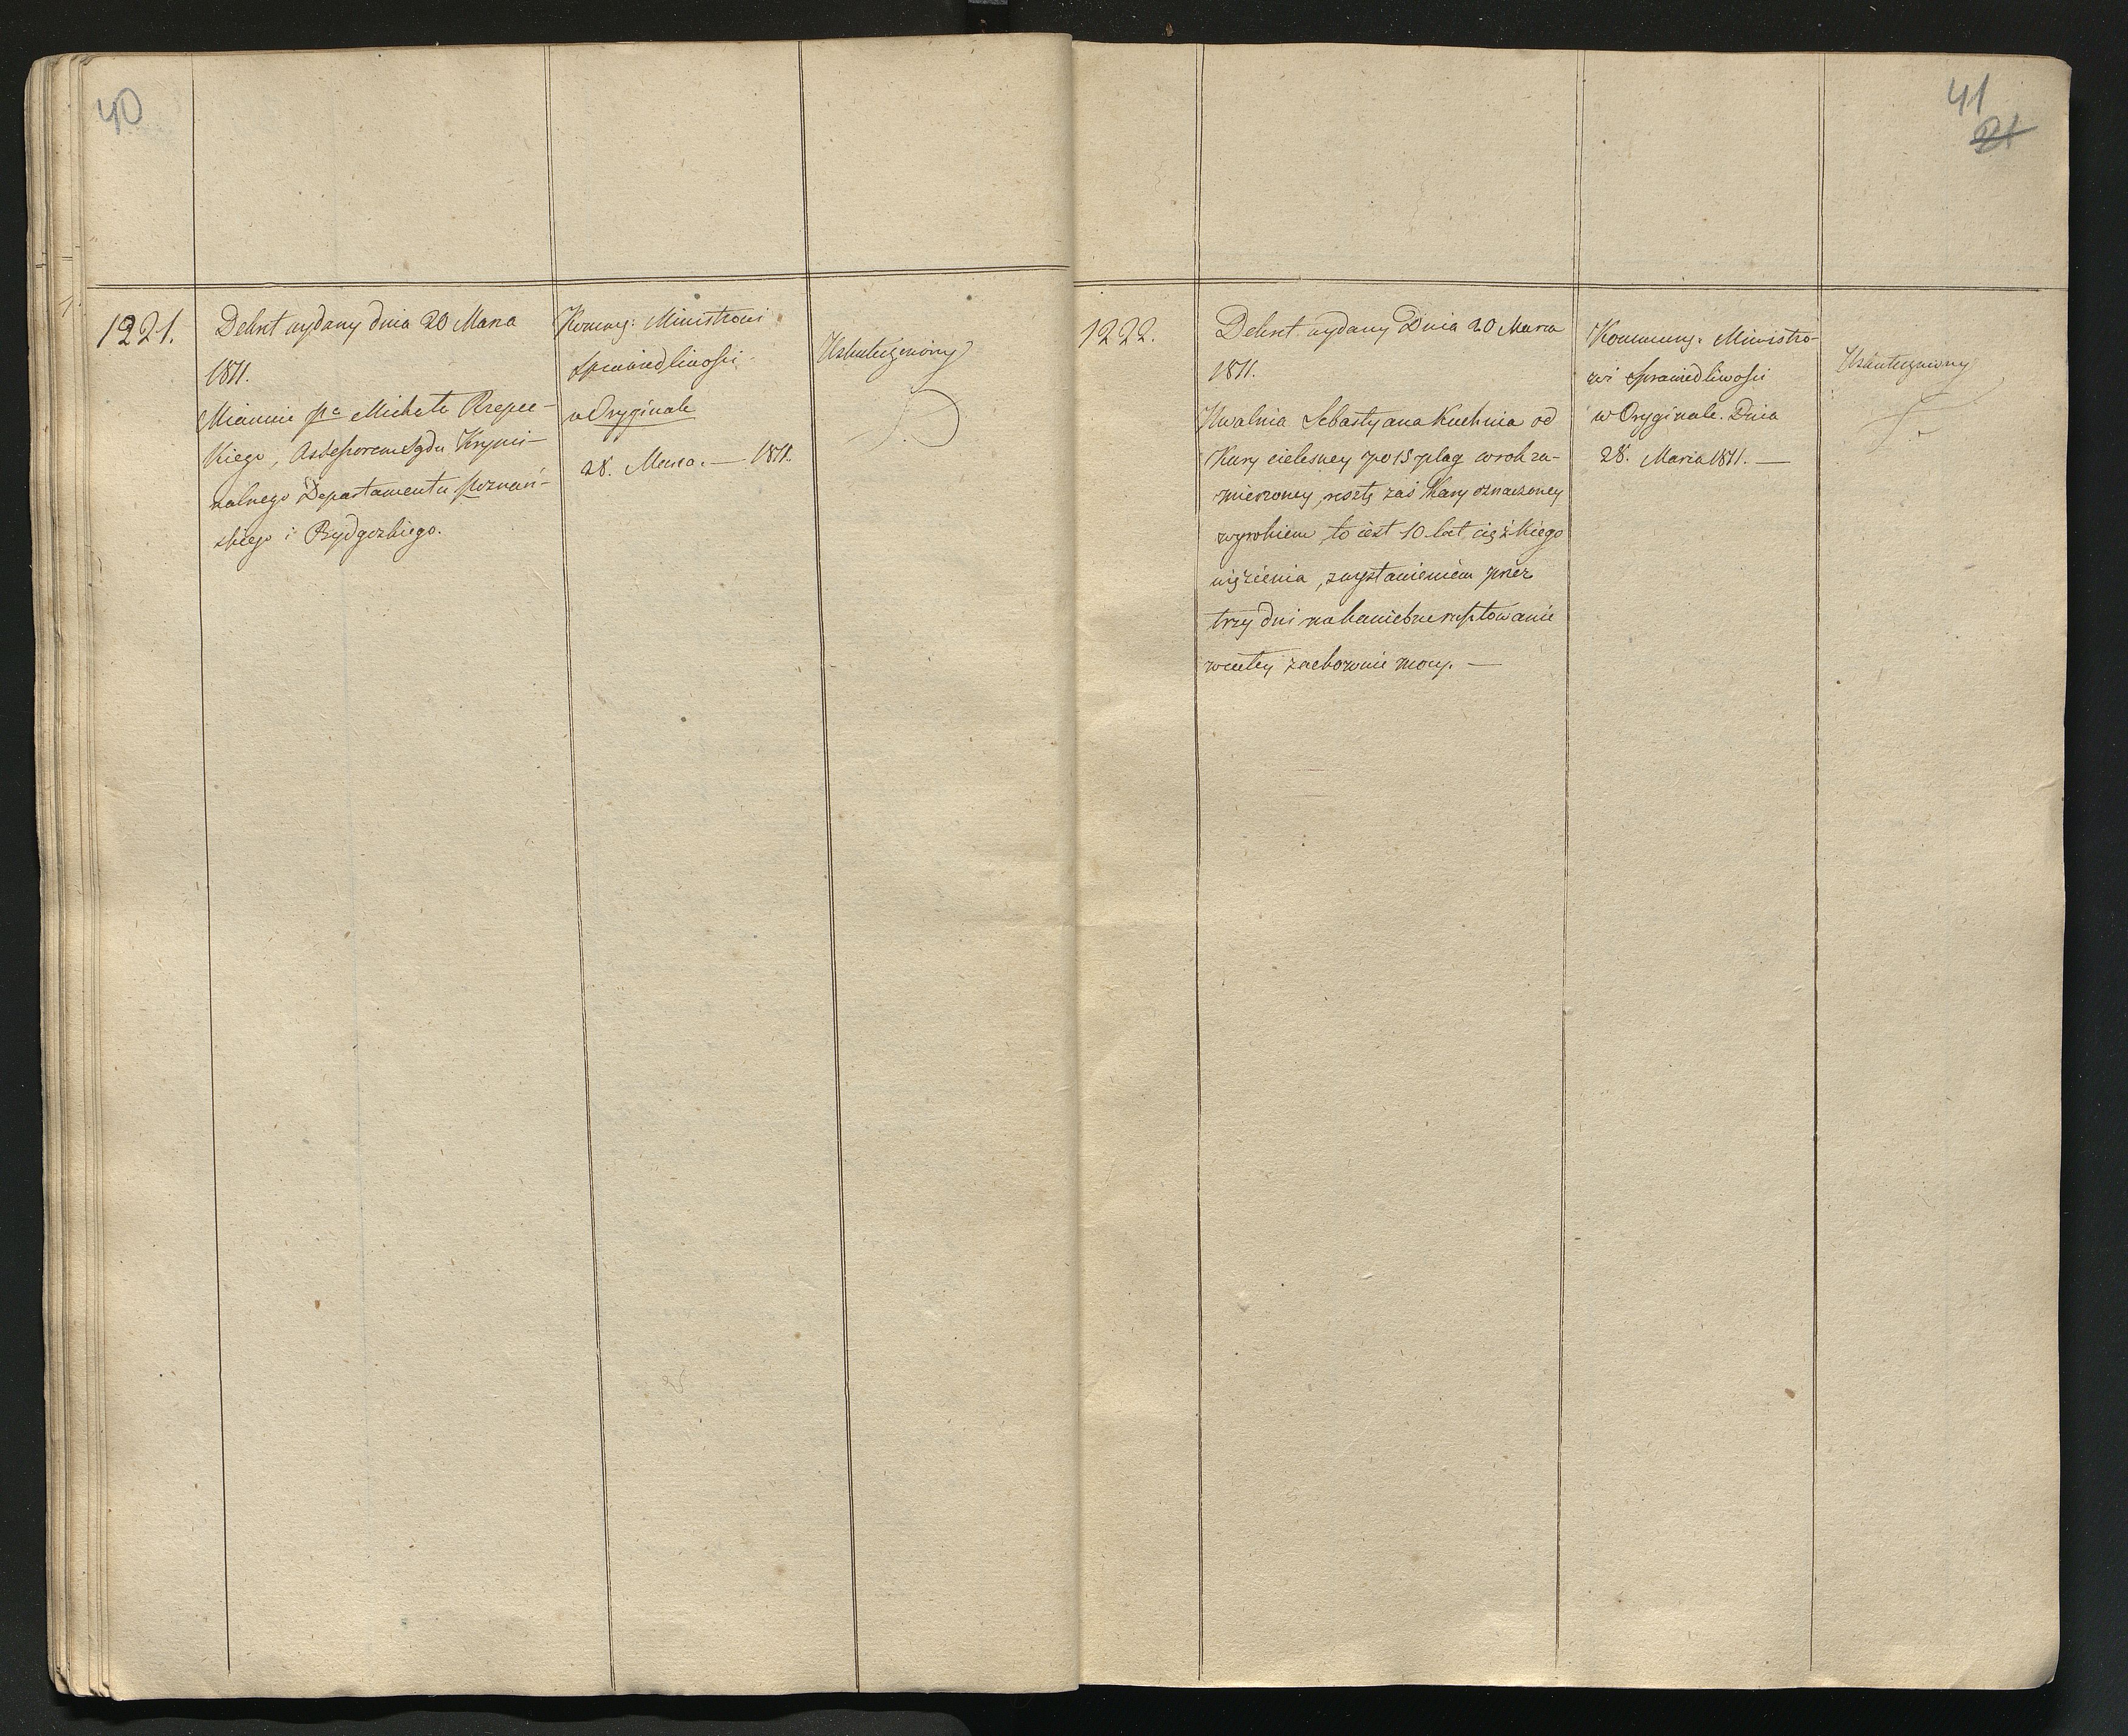 40
1221.
Dekret wydany dnia 20 Marca
1811.
Mianuie Pa Michała Rzepec-
kiego, Assessorem Sądu Krymi-
nalnego Departamentu Poznań-
skiego i Bydgoskiego.
Kommu: Ministrowi
Sprawiedliwości
w Oryginale
28. Marca. — 1811.
Uskuteczniony
41
21
1222.
Dekret wydany Dnia 20 Marca
1811.
Uwalnia Sebastyana Kuchnia od
Kary cielesney po 15 plag w rok za-
mierzoney, resztę zaś Kary oznaczoney
wyrokiem, to iest 10 lat ciężkiego
więzienia, z wystawieniem przez
trzy dni na haniebne rusztowanie
w całey zachowuie mocy. —
Kommuny: Ministro-
wi Sprawiedliwości
w Oryginale. Dnia
28. Marca 1811. —
Uskuteczniony